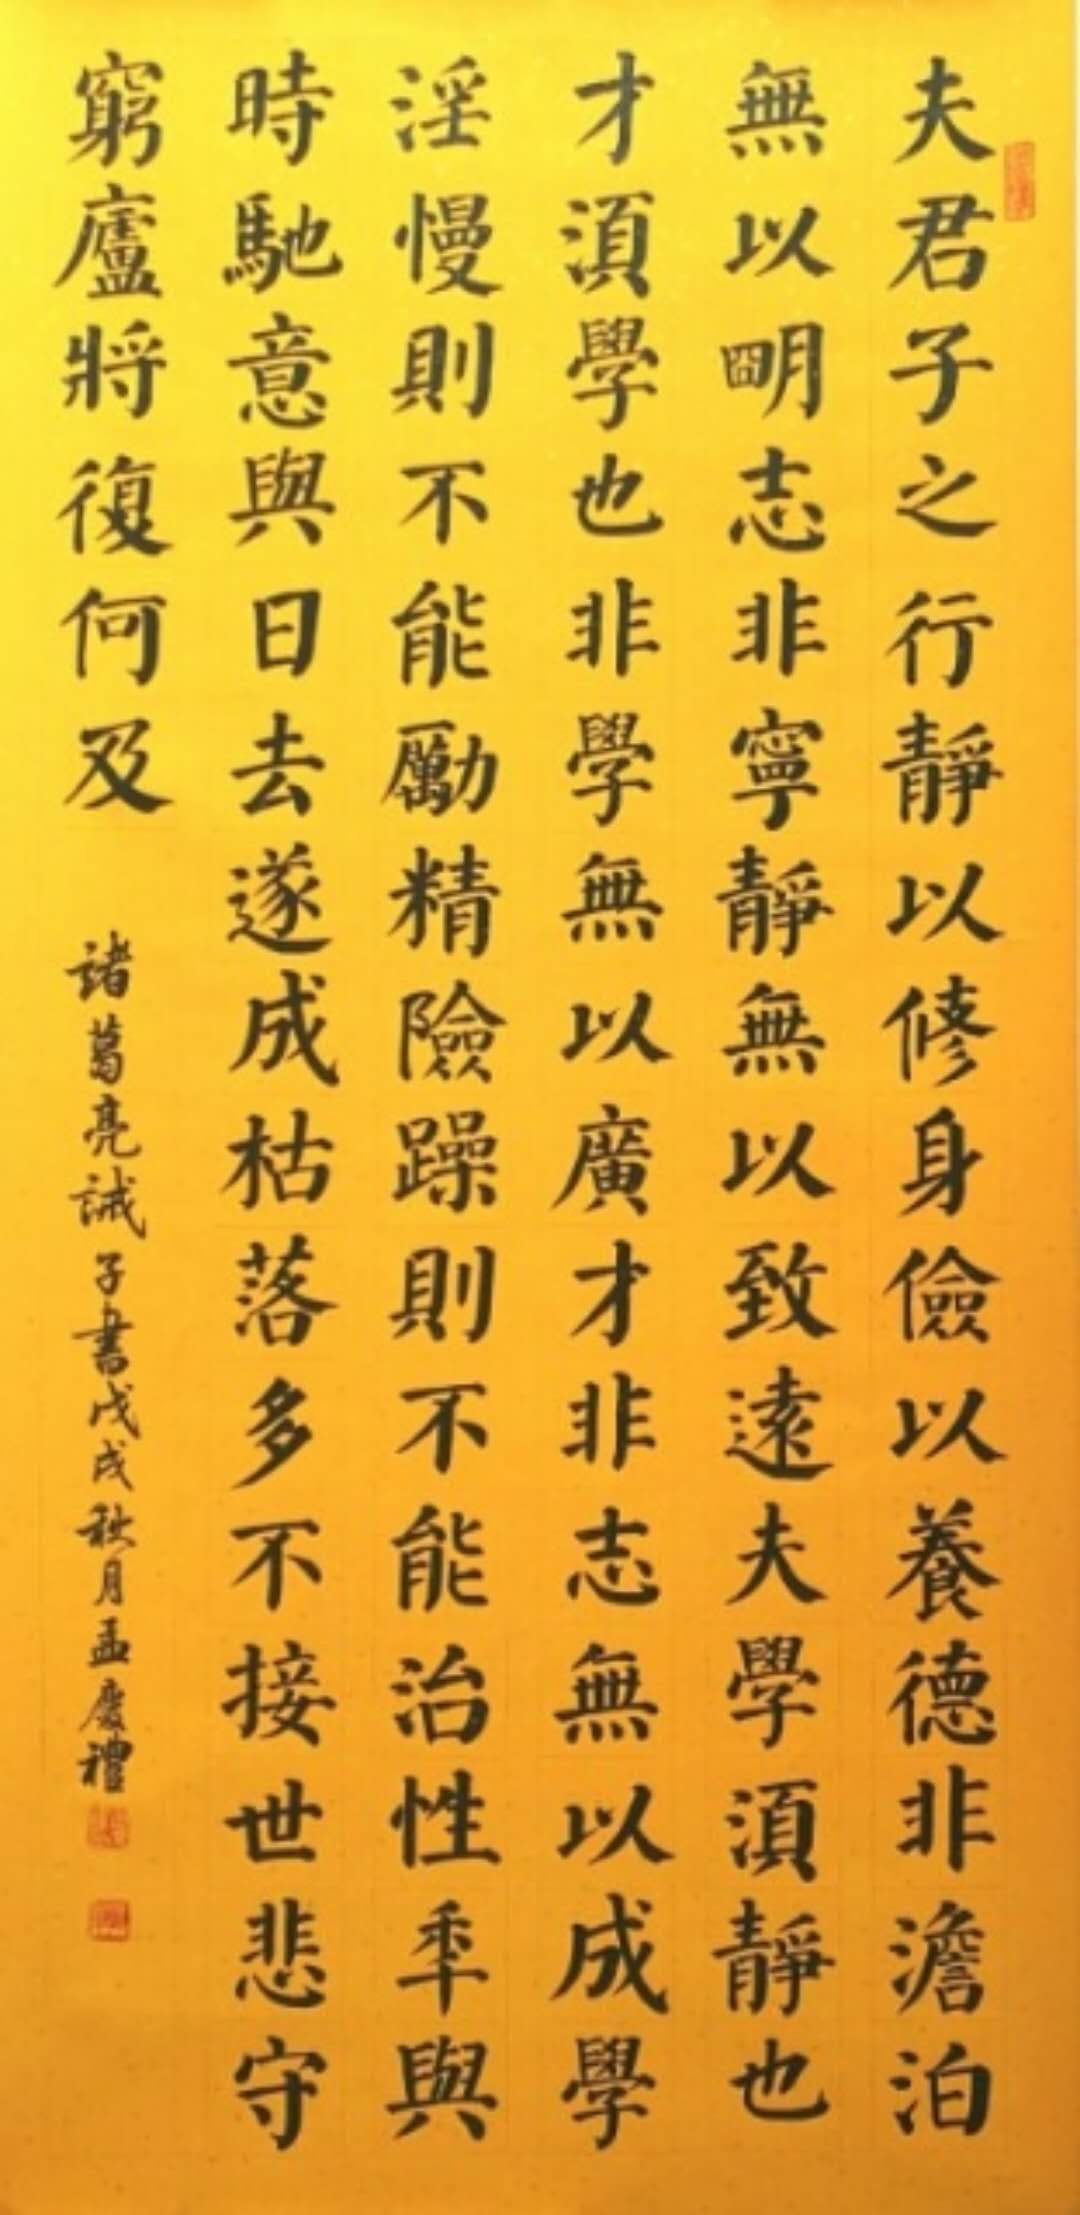 夫君子之行靜以修身儉以養德非澹泊
無以明志非寧靜無以致遠夫學須靜也
才須學也非學無以廣才非志無以成學
淫慢則不能勵精險躁則不能治性年與
時馳意與日去遂成枯落多不接世悲守
窮廬將復何及
諸葛亮誡子書戊戌秋月孟慶禮